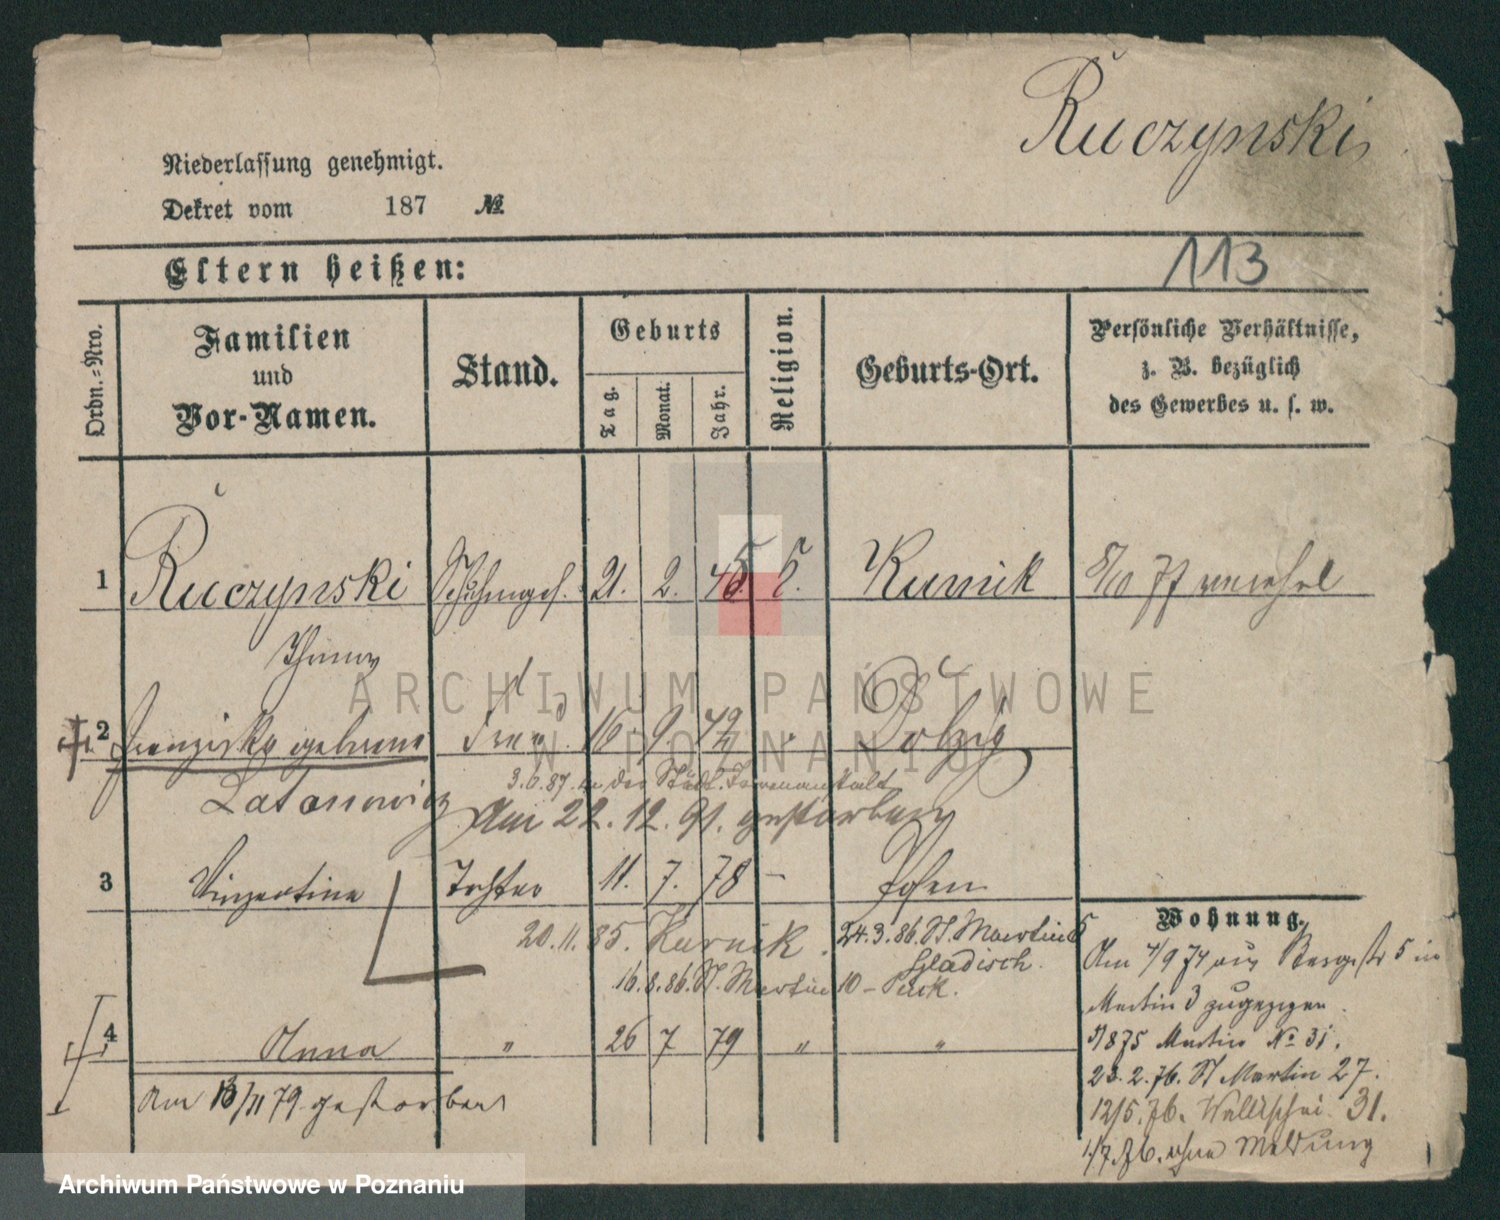 Ruczynski
Niederlassung genehmigt.
Dekret vom 187 №
113
Eltern heißen:
Ordn.-Nro.
Familien
und
Vor-Namen.
Stand.
Geburts
Tag.
Monat.
Jahr.
Religion.
Geburts-Ort.
Persönliche Verhältnisse,
z. B. bezüglich
des Gewerbes u. s. w.
1 Ruczynski 21. 2. 45. Kurnik
2 Franziska geborene Frau 16. 9. Dolzig
Latanowicz
3.6.87. in der Städt. Irrenanstalt
Am 22.12.91. gestorben
3 Tochter 11. 7. 78 – Posen
20.11.85. Kurnik. 24.3.86. St. Martin 5
Gladisch.
16.8.86. St. Martin 10 –
4 Anna " 26 7 79 " "
Wohnung.
Am 4/9 74 aus Bergstr 5 in
Martin 3 zugezogen.
Martin № 31.
23.2.76. St Martin 27.
12/5.76. Wallischei 31.
1/7.76. ohne Meldung
79 gestorben
ARCHIWUM PAŃSTWOWE
W POZNANIU
Archiwum Państwowe w Poznaniu